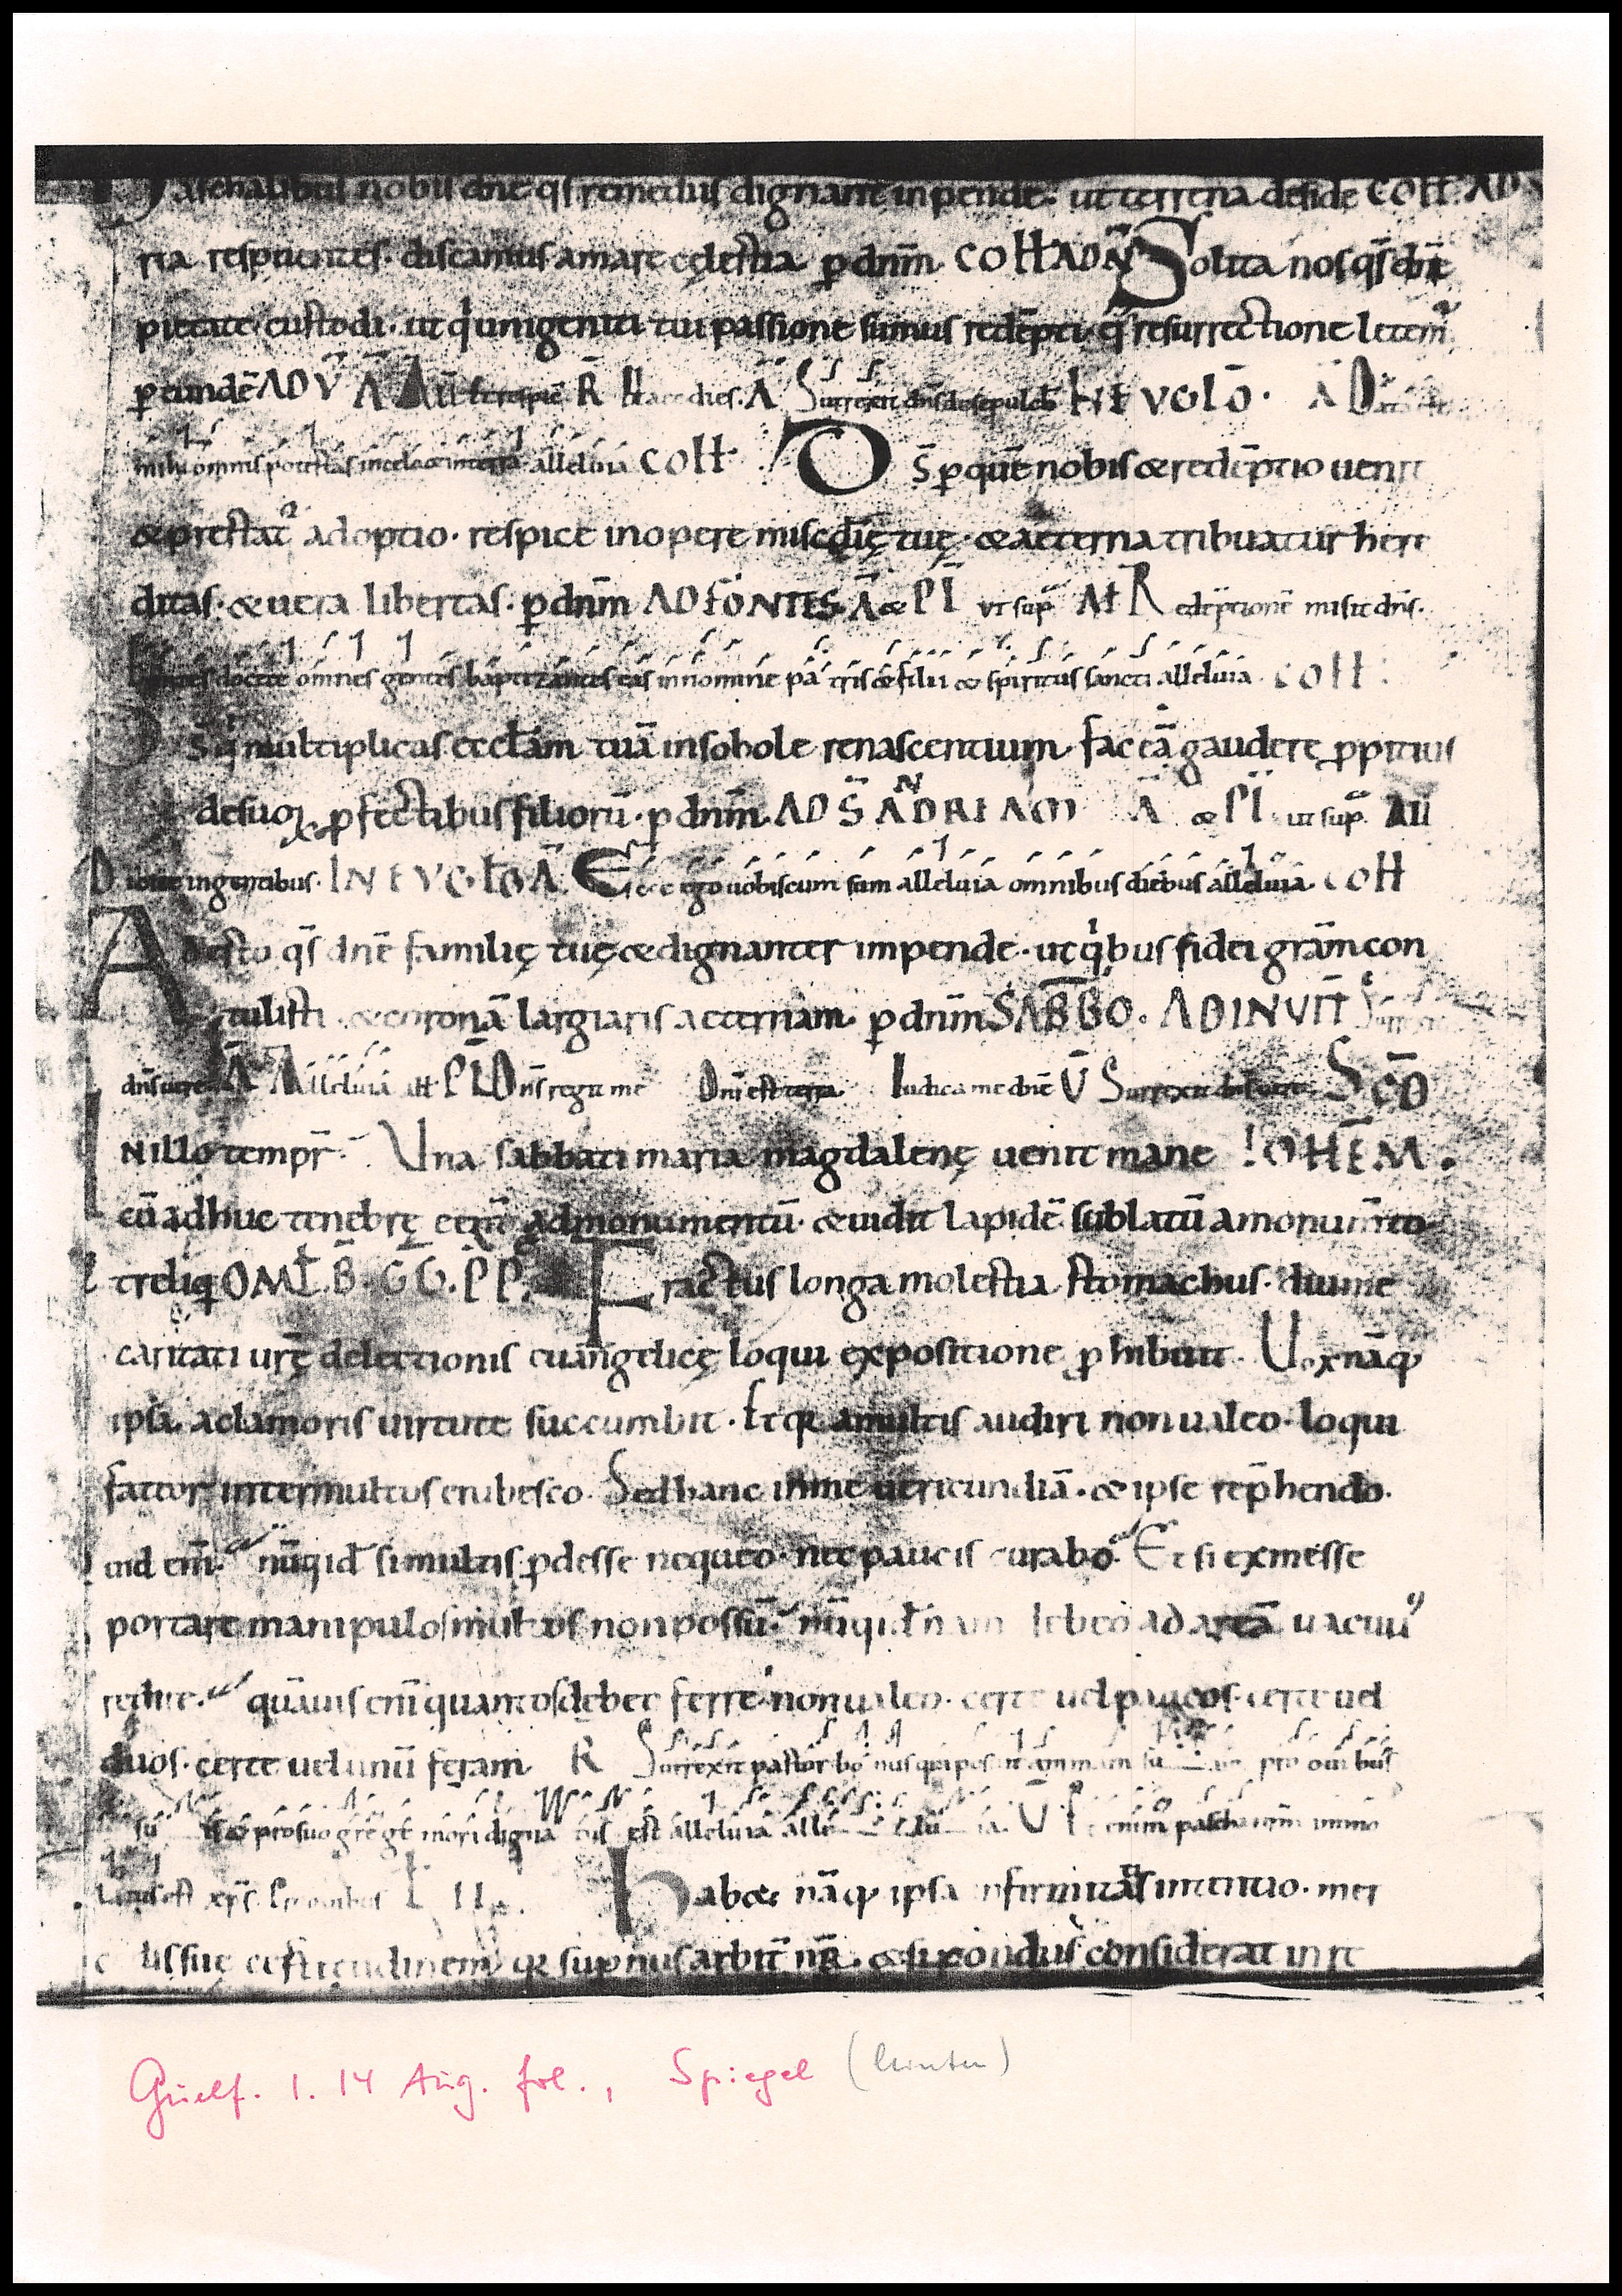 Paschalibus nobis dn̄e qs̄ remediis dignant̄ inpende· ut terrena deside COLL̄. AD
ria respuentes· discamus amare cęlestia p dn̄m· COLL AD N̄ Solita nos qs̄ dn̄e
pietate custodi· ut qui unigeniti tui passione sumus redēpti· q̄ resurrectione letem̄
p eundē AD V̄ Ā All R̄ Haec dies· Ā Surrexit dn̄s de sepulch IN EVGLŌ· Ā D
mihi omnis potestas in celo et in terra alleluia COLL D s̄ p quē nobis & redēptio uenit
& prestat adoptio· respice in opere misc̄dię tuę· & aeterna tribuatur here
ditas· & uera libertas· p dn̄m AD FONTES· Ā & PS̄ ut sup̄ All Redēptionē misit dn̄s·
Euntes docete omnes gentes baptizantes eas in nomine pa tris & filii & spiritus sancti alleluia· COLL
Ds̄ q̄ multiplicas eccl̄am tuā in sobole renascentium fac eā gaudere ppitius
de suoꝝ pfectibus filiorū· p dn̄m· AD S̄ ADRIANŪ Ā & PS̄ ut sup̄ All
Dicite in gentibus· IN EVGL̄O Ā Ecce ego uobiscum sum alleluia omnibus diebus alleluia· COLL
Adesto qs̄ dn̄e familię tuę & dignanter impende· ut qibus fidei grām con
tulisti· & coronā largiaris aeternam· p dn̄m SABB̄O· AD INVIT̄ Surrexit
dn̄s uere Ā Alleluia all PS̄ Dn̄s regit me Dn̄i est terra Iudica me dn̄e V̄ Surrexit dn̄s uere S̄CD
IN illo tempr̄· Una sabbati maria magdalenę uenit mane IOHEM̄.
cū adhuc tenebrę eēnt ad monumentū· & uidit lapidē sublatū a monum̄to·
& reliq̄ OML̄. B̄. GG. PP. Fractus longa molestia stomachus· diu me
caritati urę̄ de lectionis euāngelicę loqui expositione phibuit· Uox nāq
ipsa a clamoris uirtute succumbit· Et q̄ a multis audiri non ualeo· loqui
fateor inter multos erubesco· Sed hanc in me uericundiā· & ipse rep̄hendo·
uid em̄· nūquid si multis pdesse nequeo· nec paucis curabo Et si ex messe
portare manipulos multos non possū· nūquid nam debeo ad areā uacuus
redire· quāuis em̄ quantos debeo ferre non ualeo· certe uel paucos· certe uel
duos· certe uel unū feram R̄ Surrexit pastor bo nus qui posuit animam suam pro ouibus
suis & pro suo grege mori dignatus est alleluia alleluia V̄ Et enim pascha nrm̄ immo
latus est xp̄s· L̄ II·
Habet nāq ipsa infirmitatis intentio· mer
c lis suę certitudinem q̄ supnus arbit̄ nr̄· & si pondus considerat in re
Guelf. 1. 14 Aug. fol., Spiegel (hinten)